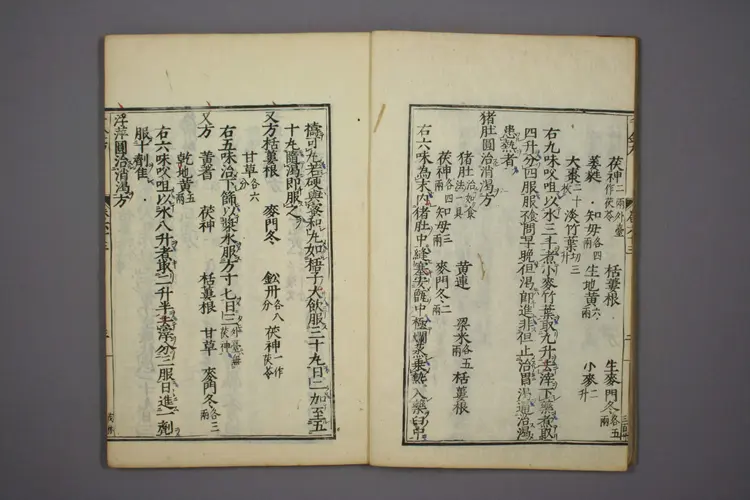 茯神二兩外臺作茯苓 栝蔞根 生麥門冬各五兩
葳蕤 知母各四兩 生地黃六兩 小麥二升
大棗二十枚 淡竹葉切三升
右九味㕮咀以水三斗煮小麥竹葉取九升去滓下藥煮取
四升分四服服不問早晚但渴即進非但止治胃渴通治渴
患熱者
猪肚圓治消渴方
猪肚一具治如食法 黃連 粱米各五兩 栝蔞根
茯神各四兩 知母三兩 麥門冬二兩
右六味為末內猪肚中縫塞安甑中極爛蒸乘熱入藥臼中
擣可丸若硬與蜜和丸如梧子大飲服三十丸日二加至五
十丸隨渴即服之
又方栝蔞根 麥門冬 鈆丹各八分 茯神一作茯苓
甘草各六分
右五味治下篩以漿水服方寸匕日三外臺無茯神
又方 黃耆 茯神 栝蔞根 甘草 麥門冬各三兩
乾地黃五兩
右六味㕮咀以水八升煮取二升半去滓分三服日進一劑
服十劑佳
浮萍圓治消渴方